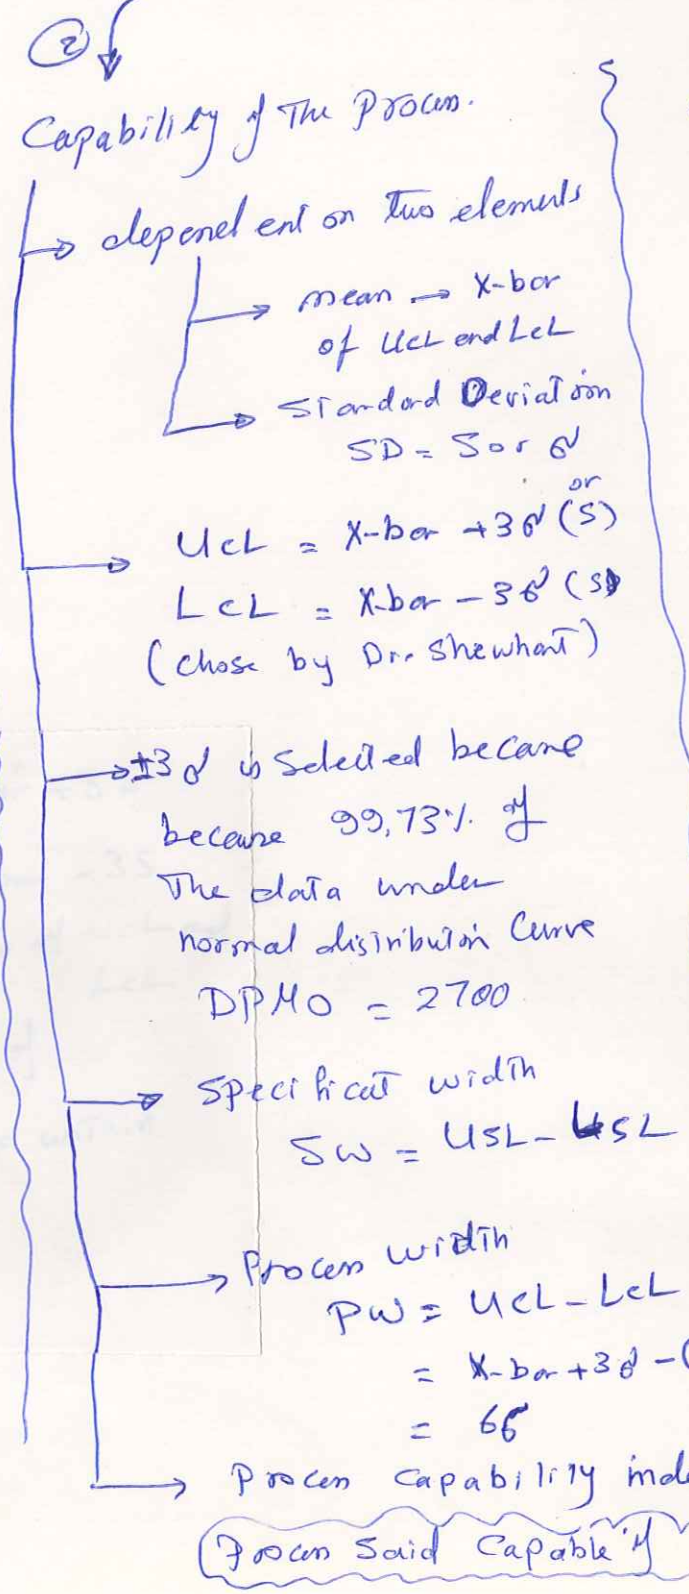 2
Capability of The Process.
dependent on two elements
mean → X-bar
of UCL and LCL
Standard Deviation
SD = S or σ
or
UCL = X-bar +3σ (S)
LCL = X-bar - 3σ (S)
(chose by Dr. Shewhart)
±3σ is Selected because
because 99,73% of
The data under
normal distribution Curve
DPMO = 2700
Specificat width
SW = USL - LSL
Process width
PW = UCL - LCL
= X-bar +3σ - (
= 6σ
Process Capability inde
Process Said Capable if